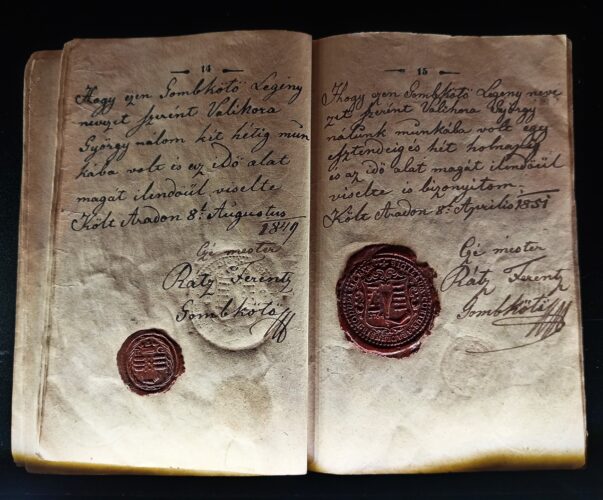 14
Hogy ezen Gombkötő Legény
nevezet szerént Valihora
György nálom két hétig mun
kába volt és ez idő alat
magát ilendöúl viselte
Költ Aradon 8t Augustus
1849
Rátz Ferentz
Gombkötő
15
Hogy ezen Gombkötő Legény neve
zet szerént Valihora György
nálunk munkába volt egy
esztendeig és hét holnapig
és az idő alat magát ilendöúl
viselte is bizonyitom.
Költ Aradon 8t Aprilis 1851
Czé mester
Rátz Ferentz
Gombkötő